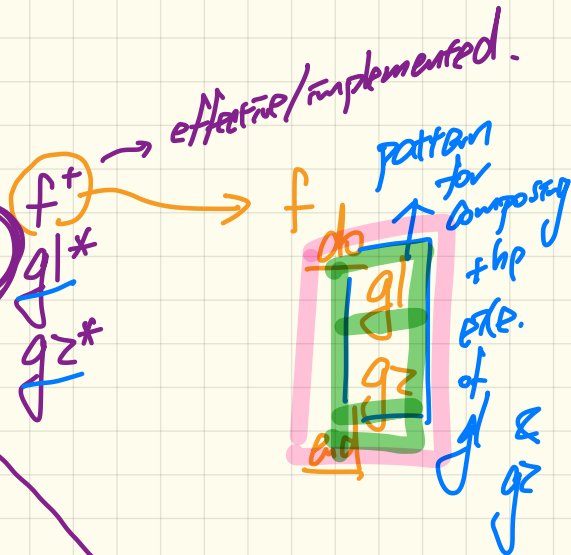 effective/implemented.
f+
g1*
g2*
f
do
g1
g2
end
pattern
for
composing
the
exe.
of
g1 &
g2